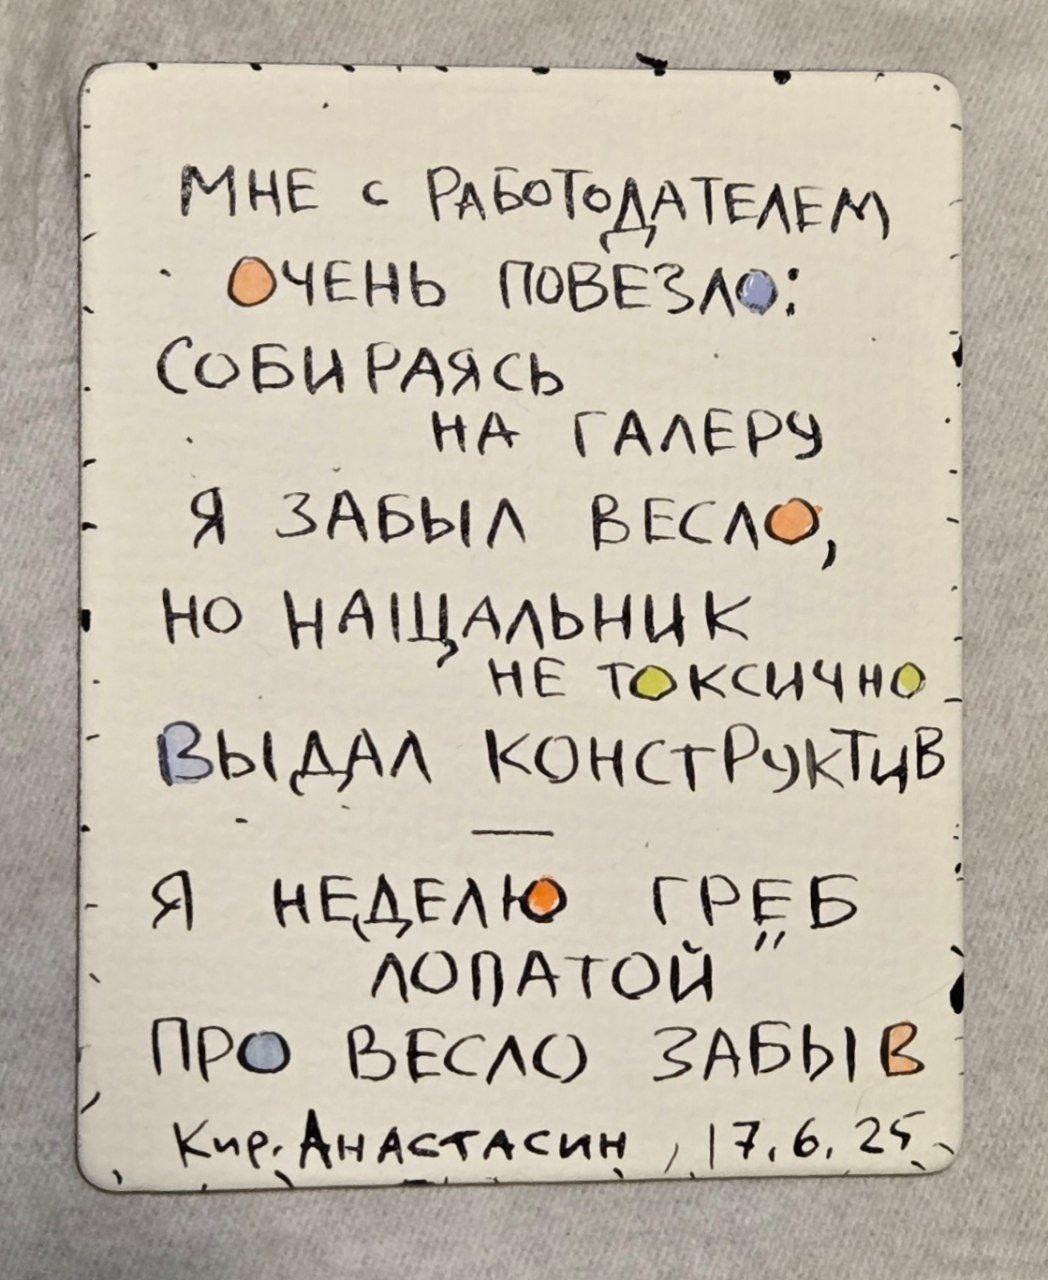 МНЕ С РАБОТОДАТЕЛЕМ
ОЧЕНЬ ПОВЕЗЛО:
СОБИРАЯСЬ
НА ГАЛЕРУ
Я ЗАБЫЛ ВЕСЛО,
НО НАЩАЛЬНИК
НЕ ТОКСИЧНО
ВЫДАЛ КОНСТРУКТИВ
—
Я НЕДЕЛЮ ГРЁБ
ЛОПАТОЙ
ПРО ВЕСЛО ЗАБЫВ
Кир. АНАСТАСИН, 17.6.25